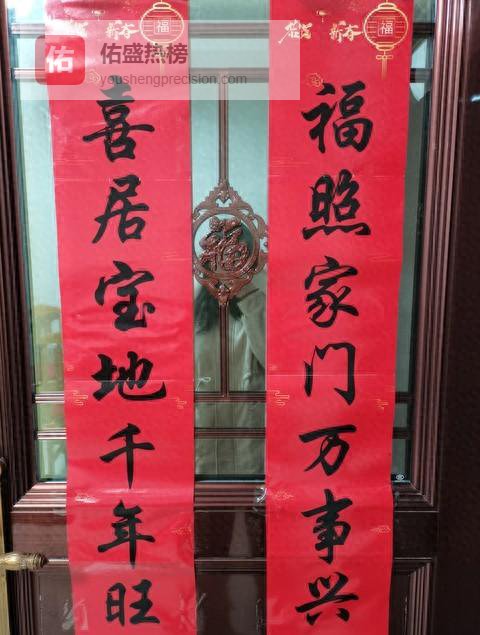 恭贺新春
福
恭贺新春
福
佑
佑盛热榜
youshengprecision.com
福照家门万事兴
喜居宝地千年旺
福